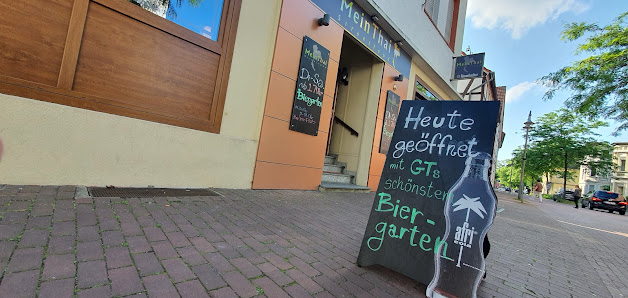 MeinThai
MeinThai
Di-So
ab 17 Uhr
Biergarten
Heute
geöffnet
mit GTs
schönsten
Bier-
garten
afri
COLA